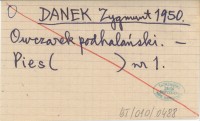 DANEK Zygmunt 1950.
Owczarek podhalański. —
Pies ( ) nr 1.
BT/010/0488